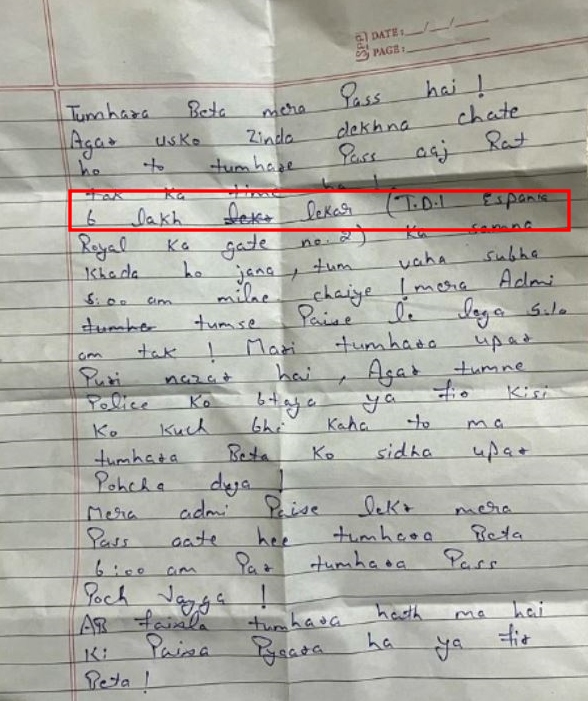 DATE: __/__/__
PAGE:
Tumhara Beta mera Pass hai !
Agar usko Zinda dekhna chate
ho to tumhare Pass aaj Rat
tak ka time ha !
6 lakh lekr lekar (T.D.I Espania
Royal Ka gate no. 2) Ka samna
Khada ho jana, tum vaha subha
5:00 am milne chaiye ! mera Admi
tumhe tumse Paise le lega 5:10
am tak ! Mari tumhara upar
Puri nazar hai, Agar tumne
Police Ko btaya ya fir Kisi
Ko Kuch bhi Kaha to ma
tumhara Beta Ko sidha upar
Pohcha dyga !
Mera admi Paise lekr mera
Pass aate hee tumhara Beta
6:00 am Par tumhara Pass
Poch Jayga !
AB faisla tumhara hath ma hai
Ki Paisa Pyaara ha ya fir
Beta !